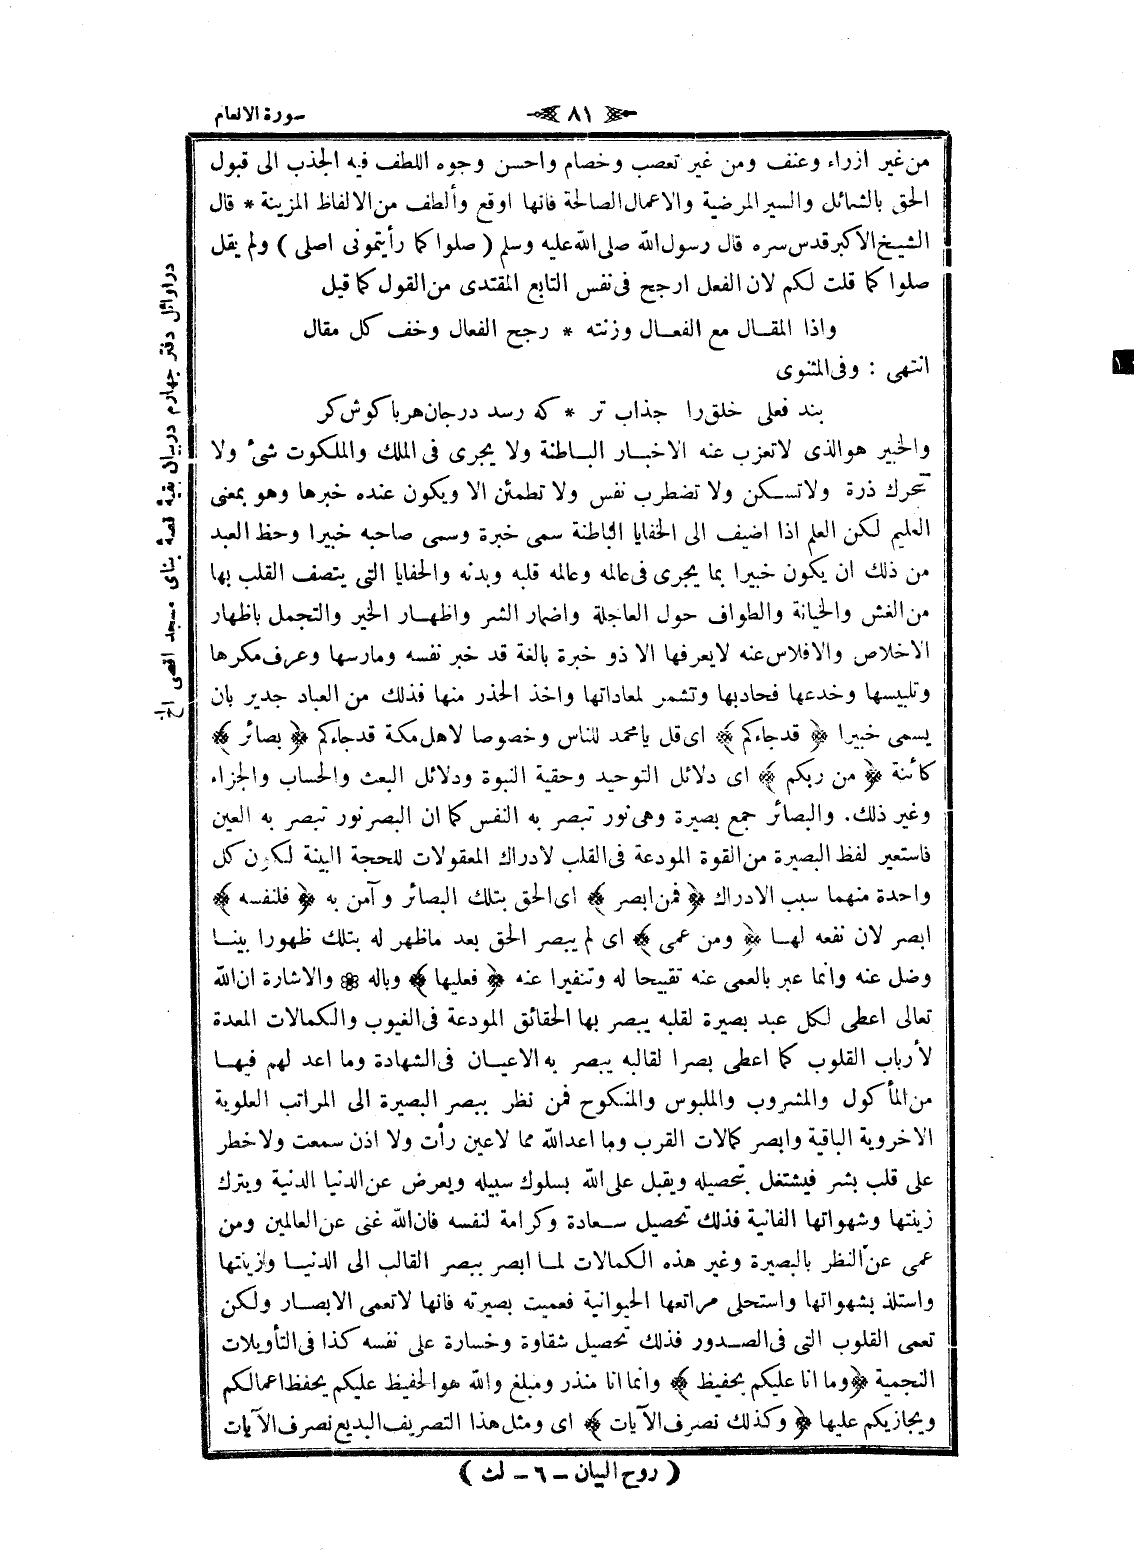 سورة الانعام
٨١
من غير ازراء وعنف ومن غير تعصب وخصام واحسن وجوه اللطف فيه الجذب الى قبول
الحق بالشمائل والسير المرضية والاعمال الصالحة فانها اوقع وألطف من الالفاظ المزينة * قال
الشيخ الاكبر قدس سره قال رسول الله صلى الله عليه وسلم ( صلوا كما رأيتمونى اصلى ) ولم يقل
صلوا كما قلت لكم لان الفعل ارجح فى نفس التابع المقتدى من القول كما قيل
واذا المقـال مع الفعـال وزنته * رجح الفعال وخف كل مقال
انتهى : وفى المثنوى
بند فعلى خلق را جذاب تر * كه رسد در جان هر با كوش كر
والخبير هو الذى لا تعزب عنه الاخبـار البـاطنة ولا يجرى فى الملك والملكوت شئ ولا
تتحرك ذرة ولا تسـكن ولا تضطرب نفس ولا تطمئن الا ويكون عنده خبرها وهو بمعنى
العليم لكن العلم اذا اضيف الى الخفايا الباطنة سمى خبرة وسمى صاحبه خبيرا وحظ العبد
من ذلك ان يكون خبيرا بما يجرى فى عالمه وعالمه قلبه وبدنه والخفايا التى يتصف القلب بها
من الغش والخيانة والطواف حول العاجلة واضمار الشر واظهـار الخير والتجمل باظهار
الاخلاص والافلاس عنه لايعرفها الا ذو خبرة بالغة قد خبر نفسه ومارسها وعرف مكرها
وتلبيسها وخدعها فحادبها وتشمر لمعاداتها واخذ الحذر منها فذلك من العباد جدير بان
يسمى خبيرا ﴿ قدجاءكم ﴾ اى قل يامحمد للناس وخصوصا لاهل مكة قدجاءكم ﴿ بصائر ﴾
كائنة ﴿ من ربكم ﴾ اى دلائل التوحيد وحقية النبوة ودلائل البعث والحساب والجزاء
وغير ذلك. والبصائر جمع بصيرة وهى نور تبصر به النفس كما ان البصر نور تبصر به العين
فاستعير لفظ البصيرة من القوة المودعة فى القلب لادراك المعقولات للحجة البينة لكون كل
واحدة منهما سبب الادراك ﴿ فمن ابصر ﴾ اى الحق بتلك البصائر وآمن به ﴿ فلنفسه ﴾
ابصر لان نفعه لهـا ﴿ ومن عمى ﴾ اى لم يبصر الحق بعد ماظهر له بتلك ظهورا بينـا
وضل عنه وانما عبر بالعمى عنه تقبيحا له وتنفيرا عنه ﴿ فعليها ﴾ وباله ❁ والاشارة ان الله
تعالى اعطى لكل عبد بصيرة لقلبه يبصر بها الحقائق المودعة فى الغيوب والكمالات المعدة
لأرباب القلوب كما اعطى بصرا لقالبه يبصر به الاعيـان فى الشهادة وما اعد لهم فيهـا
من المأكول والمشروب والملبوس والمنكوح فمن نظر ببصر البصيرة الى المراتب العلوية
الاخروية الباقية وابصر كمالات القرب وما اعدالله مما لاعين رأت ولا اذن سمعت ولا خطر
على قلب بشر فيشتغل بتحصيله ويقبل على الله بسلوك سبيله ويعرض عن الدنيا الدنية ويترك
زينتها وشهواتها الفانية فذلك تحصيل سـعادة وكرامة لنفسه فان الله غنى عن العالمين ومن
عمى عن النظر بالبصيرة وغير هذه الكمالات لمـا ابصر ببصر القالب الى الدنيـا وزينتها
واستلذ بشهواتها واستحلى مراتعها الحيوانية فعميت بصيرته فانها لاتعمى الابصـار ولكن
تعمى القلوب التى فى الصـدور فذلك تحصيل شقاوة وخسارة على نفسه كذا فى التأويلات
النجمية ﴿ وما انا عليكم بحفيظ ﴾ وانما انا منذر ومبلغ والله هو الحفيظ عليكم يحفظ اعمالكم
ويجازيكم عليها ﴿ وكذلك نصرف الآيات ﴾ اى ومثل هذا التصريف البديع نصرف الآيات
( روح البيان – ٦ – لث )
در اوائل دفتر چهارم در بيان بقيهٔ قصهٔ بناى مسجد اقصى الخ